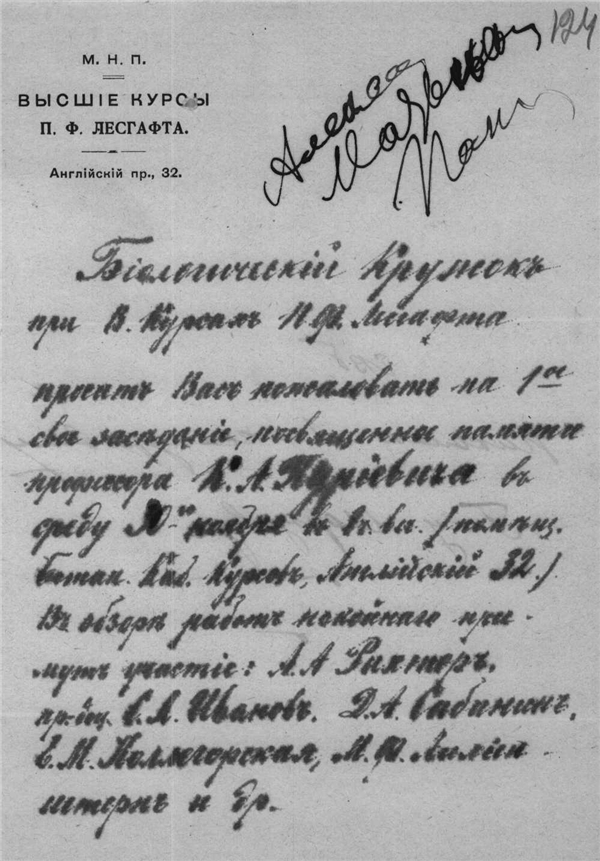 124
М. Н. П.
ВЫСШІЕ КУРСЫ
П. Ф. ЛЕСГАФТА.
Англійскій пр., 32.
Біологическій Кружокъ
при В. Курсахъ П. Ф. Лесгафта
просятъ Васъ пожаловать на 1ое
свое засѣданіе, посвященное памяти
профессора К. А. Пуріевича въ
среду ноября въ 8 ч. в. /помѣщ.
ботан. Каб. Курсовъ, Англійскій 32./
Въ обзорѣ работъ покойнаго при-
мутъ участіе: А. А Рихтеръ,
С. Л. Ивановъ. Д. А. Сабининъ,
Е. М. М. Ф. Лиліен
штернъ и др.